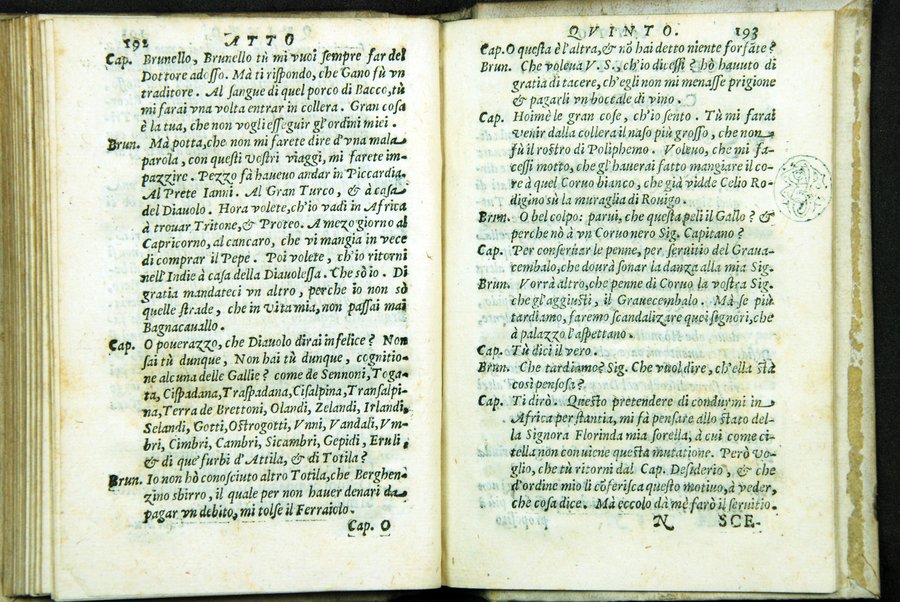 192 ATTO
Cap. Brunello, Brunello tù mi vuoi sempre far del
Dottore adosso. Mà ti rispondo, che Gano fù vn
traditore. Al sangue di quel porco di Bacco, tù
mi farai vna volta entrar in collera. Gran cosa
è la tua, che non vogli esseguir gl'ordini miei.
Brun. Mà potta, che non mi farete dire d'vna mala
parola, con questi vostri viaggi, mi farete im-
pazzire. Pezzo fà haueuo andar in Piccardia.
Al Prete Ianni. Al Gran Turco, & à casa
del Diauolo. Hora volete, ch'io vadi in Africa
à trouar Tritone, & Proteo. A mezo giorno al
Capricorno, al cancaro, che vi mangia in vece
di comprar il Pepe. Poi volete, ch'io ritorni
nell'Indie à casa della Diauolessa. Che sò io. Di
gratia mandateci vn altro, perche io non sò
quelle strade, che in vita mia, non passai mai
Bagnacauallo.
Cap. O pouerazzo, che Diauolo dirai infelice? Non
sai tù dunque, Non hai tù dunque, cognitio-
ne alcuna delle Gallie? come de Sennoni, Toga-
ta, Cispadana, Traspadana, Cisalpina, Transalpi-
na, Terra de Brettoni, Olandi, Zelandi, Irlandi,
Selandi, Gotti, Ostrogotti, Vnni, Vandali, Vm-
bri, Cimbri, Cambri, Sicambri, Gepidi, Eruli,
& di que' furbi d'Attila, & di Totila?
Brun. Io non hò conosciuto altro Totila, che Berghen-
zino sbirro, il quale per non hauer denari da
pagar vn debito, mi tolse il Ferraiolo.
Cap. O
QVINTO. 193
Cap. O questa è l'altra, & nõ hai detto niente forsate?
Brun. Che voleua V. S., ch'io dicessi? hò hauuto di
gratia di tacere, ch'egli non mi menasse prigione
& pagarli vn boccale di vino.
Cap. Hoimè le gran cose, ch'io sento. Tù mi farai
venir dalla collera il naso più grosso, che non
fù il rostro di Poliphemo. Voleuo, che mi fa-
cessi motto, che gl'hauerai fatto mangiare il co-
re à quel Coruo bianco, che già vidde Celio Ro-
digino sù la muraglia di Rouigo.
Brun. O bel colpo: parui, che questa peli il Gallo? &
perche nõ à vn Coruo nero Sig. Capitano?
Cap. Per conseruar le penne, per seruitio del Graua-
cembalo, che dourà sonar la danza alla mia Sig.
Brun. Vorrà altro, che penne di Coruo la vostra Sig.
che gl'aggiusti, il Grauecembalo. Mà se più
tardiamo, faremo scandalizare quei signori, che
à palazzo l'aspettano.
Cap. Tù dici il vero.
Brun. Che tardiamo? Sig. Che vuol dire, ch'ella stà
così pensosa?
Cap. Ti dirò. Questo pretendere di condurmi in
Africa per stantia, mi fà pensare allo stato del-
la Signora Florinda mia sorella, à cui come ci-
tella non conuiene questa mutatione. Però vo-
glio, che tù ritorni dal Cap. Desiderio, & che
d'ordine mio li cõferisca questo motiuo, à veder,
che cosa dice. Mà eccolo da mè farò il seruitio.
N SCE-